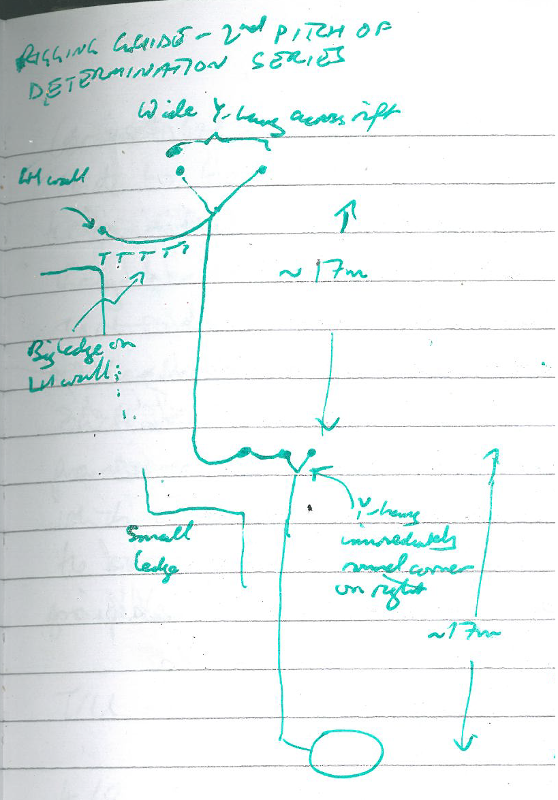 RIGGING GUIDE - 2nd PITCH OF
DETERMINATION SERIES
Wide Y-hang across rift
LH wall
~ 17m
Big ledge on
LH wall;
Small
ledge
Y-hang
immediately
round corner
on right
~17m